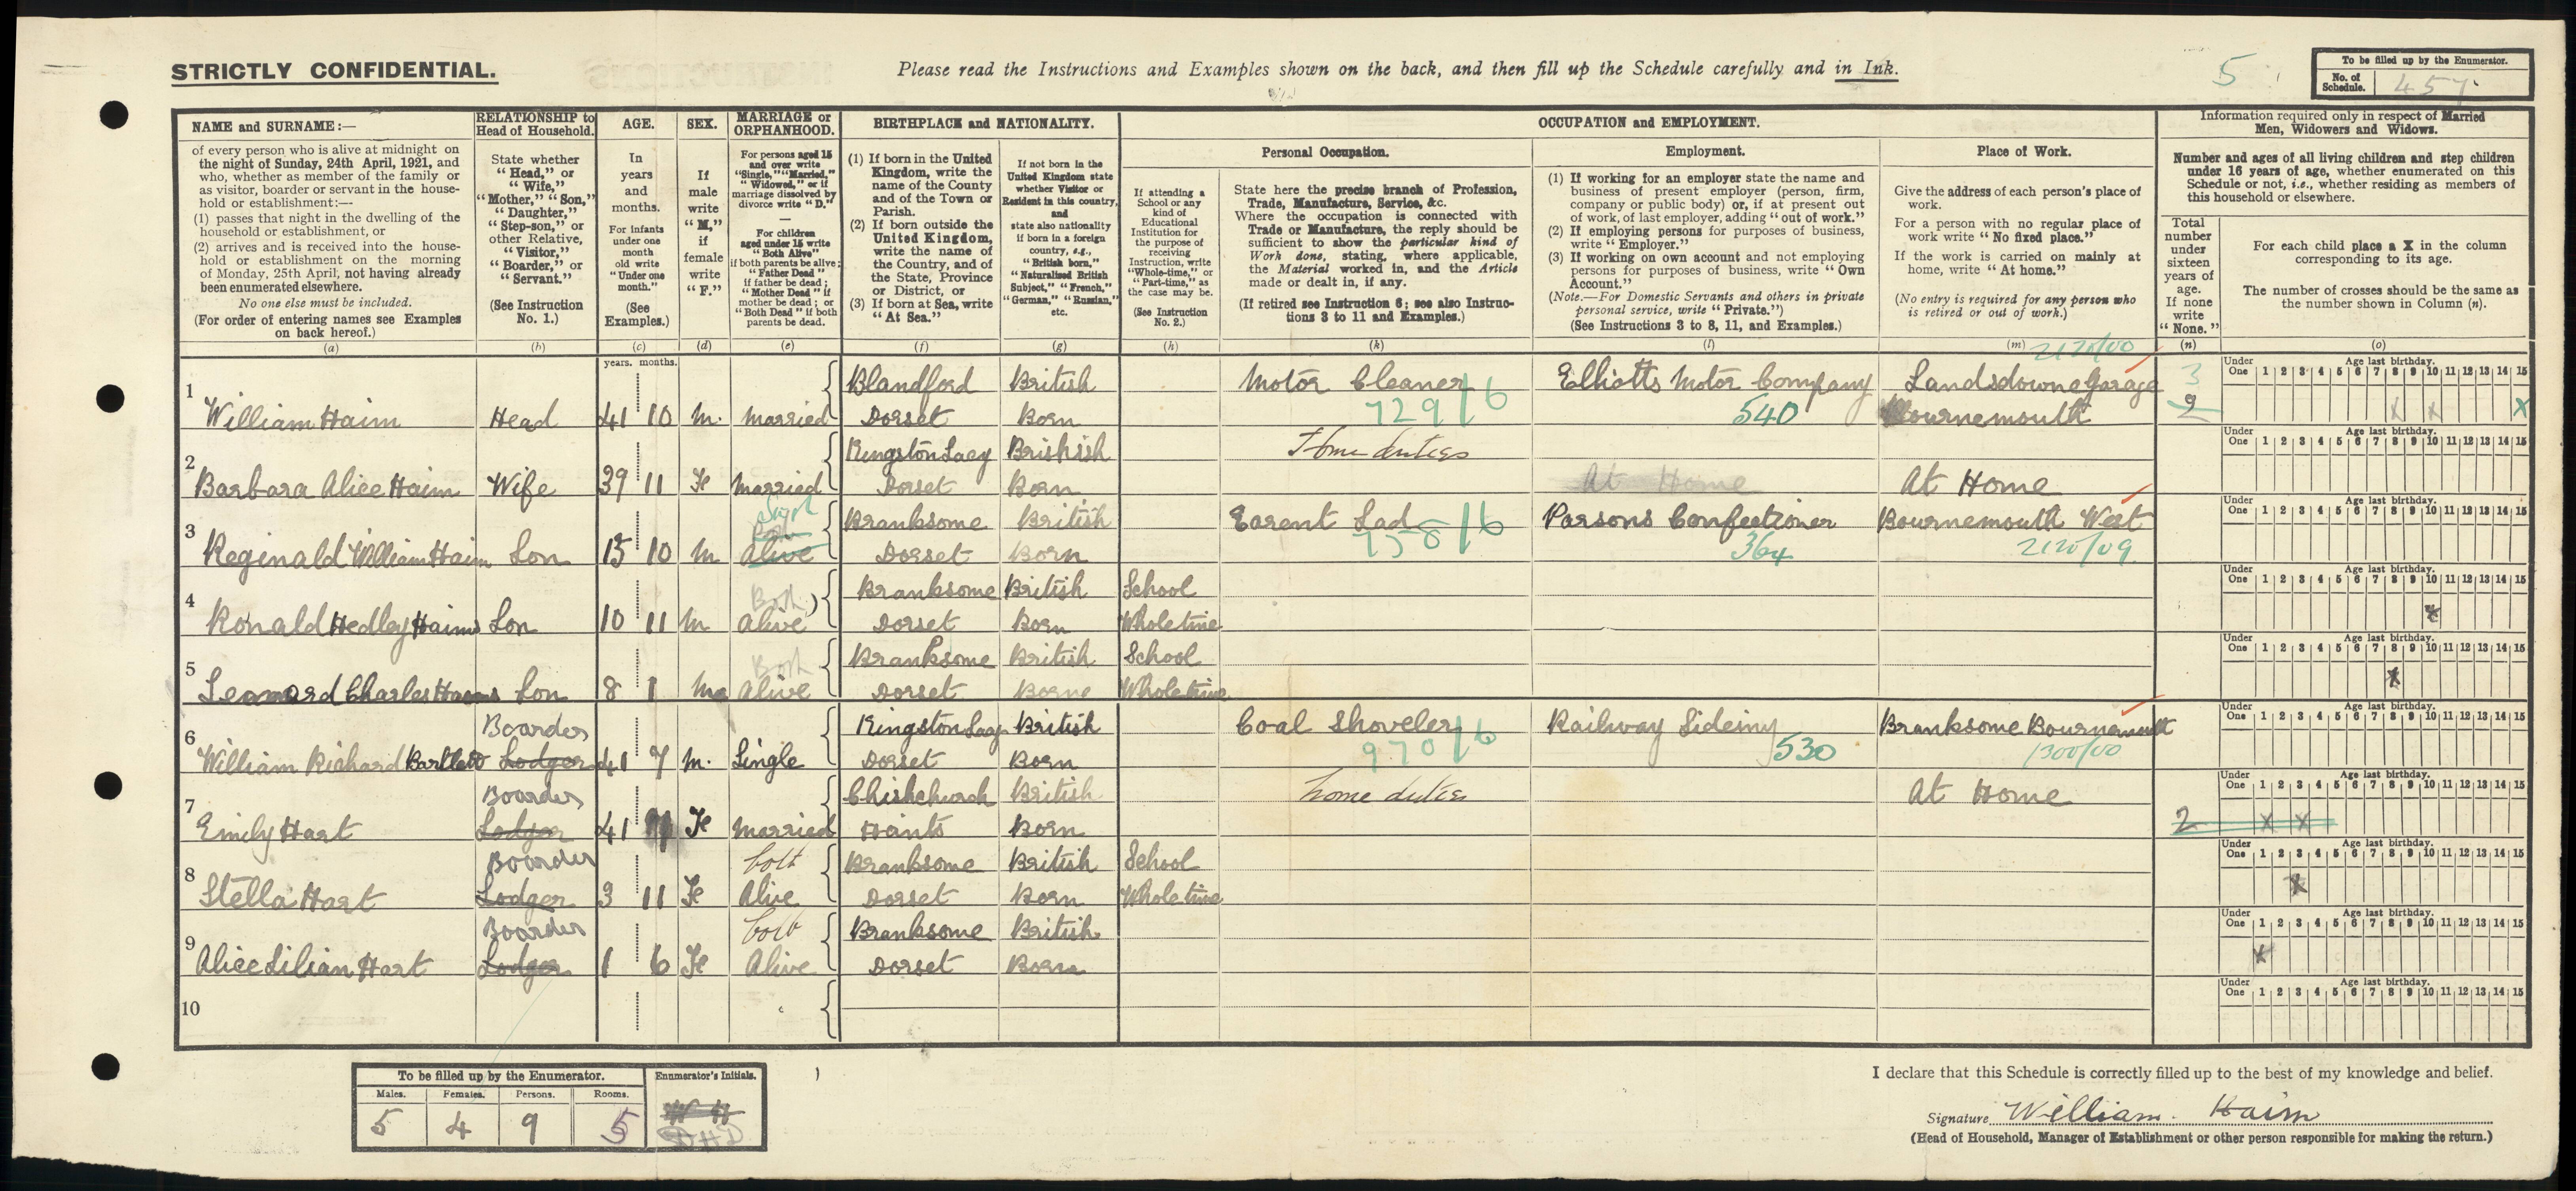 STRICTLY CONFIDENTIAL.
Please read the Instructions and Examples shown on the back, and then fill up the Schedule carefully and in Ink.
5
To be filled up by the Enumerator.
No. of Schedule. 457.
NAME and SURNAME:—
of every person who is alive at midnight on
the night of Sunday, 24th April, 1921, and
who, whether as member of the family or
as visitor, boarder or servant in the house-
hold or establishment:—
(1) passes that night in the dwelling of the
household or establishment, or
(2) arrives and is received into the house-
hold or establishment on the morning
of Monday, 25th April, not having already
been enumerated elsewhere.
No one else must be included.
(For order of entering names see Examples
on back hereof.)
(a)
RELATIONSHIP to
Head of Household.
State whether
"Head," or
"Wife,"
"Mother," "Son,"
"Daughter,"
"Step-son," or
other Relative,
"Visitor,"
"Boarder," or
"Servant."
(See Instruction
No. 1.)
(b)
AGE.
In
years
and
months.
For infants
under one
month
old write
"Under one
month."
(See
Examples.)
(c)
SEX.
If
male
write
"M,"
if
female
write
"F."
(d)
MARRIAGE or
ORPHANHOOD.
For persons aged 15
and over write
"Single," "Married,"
"Widowed," or if
marriage dissolved by
divorce write "D."
—
For children
aged under 15 write
"Both Alive"
if both parents be alive;
"Father Dead"
if father be dead;
"Mother Dead" if
mother be dead; or
"Both Dead" if both
parents be dead.
(e)
BIRTHPLACE and NATIONALITY.
(1) If born in the United
Kingdom, write the
name of the County
and of the Town or
Parish.
(2) If born outside the
United Kingdom,
write the name of
the Country, and of
the State, Province
or District, or
(3) If born at Sea, write
"At Sea."
(f)
If not born in the
United Kingdom state
whether Visitor or
Resident in this country,
and
state also nationality
if born in a foreign
country, e.g.,
"British born,"
"Naturalised British
Subject," "French,"
"German," "Russian,"
etc.
(g)
OCCUPATION and EMPLOYMENT.
If attending a
School or any
kind of
Educational
Institution for
the purpose of
receiving
Instruction, write
"Whole-time," or
"Part-time," as
the case may be.
(See Instruction
No. 2.)
(h)
Personal Occupation.
State here the precise branch of Profession,
Trade, Manufacture, Service, &c.
Where the occupation is connected with
Trade or Manufacture, the reply should be
sufficient to show the particular kind of
Work done, stating, where applicable,
the Material worked in, and the Article
made or dealt in, if any.
(If retired see Instruction 6; see also Instruc-
tions 3 to 11 and Examples.)
(k)
Employment.
(1) If working for an employer state the name and
business of present employer (person, firm,
company or public body) or, if at present out
of work, of last employer, adding "out of work."
(2) If employing persons for purposes of business,
write "Employer."
(3) If working on own account and not employing
persons for purposes of business, write "Own
Account."
(Note.—For Domestic Servants and others in private
personal service, write "Private.")
(See Instructions 3 to 8, 11, and Examples.)
(l)
Place of Work.
Give the address of each person's place of
work.
For a person with no regular place of
work write "No fixed place."
If the work is carried on mainly at
home, write "At home."
(No entry is required for any person who
is retired or out of work.)
(m)
Information required only in respect of Married
Men, Widowers and Widows.
Number and ages of all living children and step children
under 16 years of age, whether enumerated on this
Schedule or not, i.e., whether residing as members of
this household or elsewhere.
Total
number
under
sixteen
years of
age.
If none
write
"None."
(n)
For each child place a X in the column
corresponding to its age.
The number of crosses should be the same as
the number shown in Column (n).
(o)
years. months.
2120/00
1 Blandford British Motor Cleaner Elliotts Motor Company Landsdowne Garage 3
William Haim Head 41 10 M. Married Dorset Born 729/6 540 Bournemouth 2 X X X
2 Kingston Lacy Brishish Home duties
Barbara Alice Haim Wife 39 11 Fe Married Dorset Born At Home At Home
3 Single Both Branksome British Earent Lad Parsons Confectioner Bournemouth West
Reginald William Haim Son 15 10 M Alive Dorset Born 758/6 364 2120/09
4 Both Branksome British School
Ronald Hedley Haim Son 10 11 M Alive Dorset Born Wholetime X
5 Both Branksome British School
Leonard Charles Haim Son 8 1 Ma Alive Dorset Borne Wholetime X
6 Boarder Kingston Lacy British Coal Shoveler Railway Sideiny Branksome Bournemouth
William Richard Bartlett Lodger 41 7 M. Single Dorset Born 970/6 530 1300/00
7 Boarder Chishchurch British home duties At Home
Emily Hart Lodger 41 Fe Married Hants Born 2 X X
8 Boarder both Branksome British School
Stella Hart Lodger 3 11 Fe Alive Dorset Born Whole time X
9 Boarder both Branksome British
Alice Lilian Hart Lodger 1 6 Fe Alive Dorset Born X
10
Under One 1 2 3 4 5 6 7 8 9 10 11 12 13 14 15
Age last birthday.
To be filled up by the Enumerator.
Males. Females. Persons. Rooms.
5 4 9 5
Enumerator's Initials.
I declare that this Schedule is correctly filled up to the best of my knowledge and belief.
Signature William. Haim
(Head of Household, Manager of Establishment or other person responsible for making the return.)